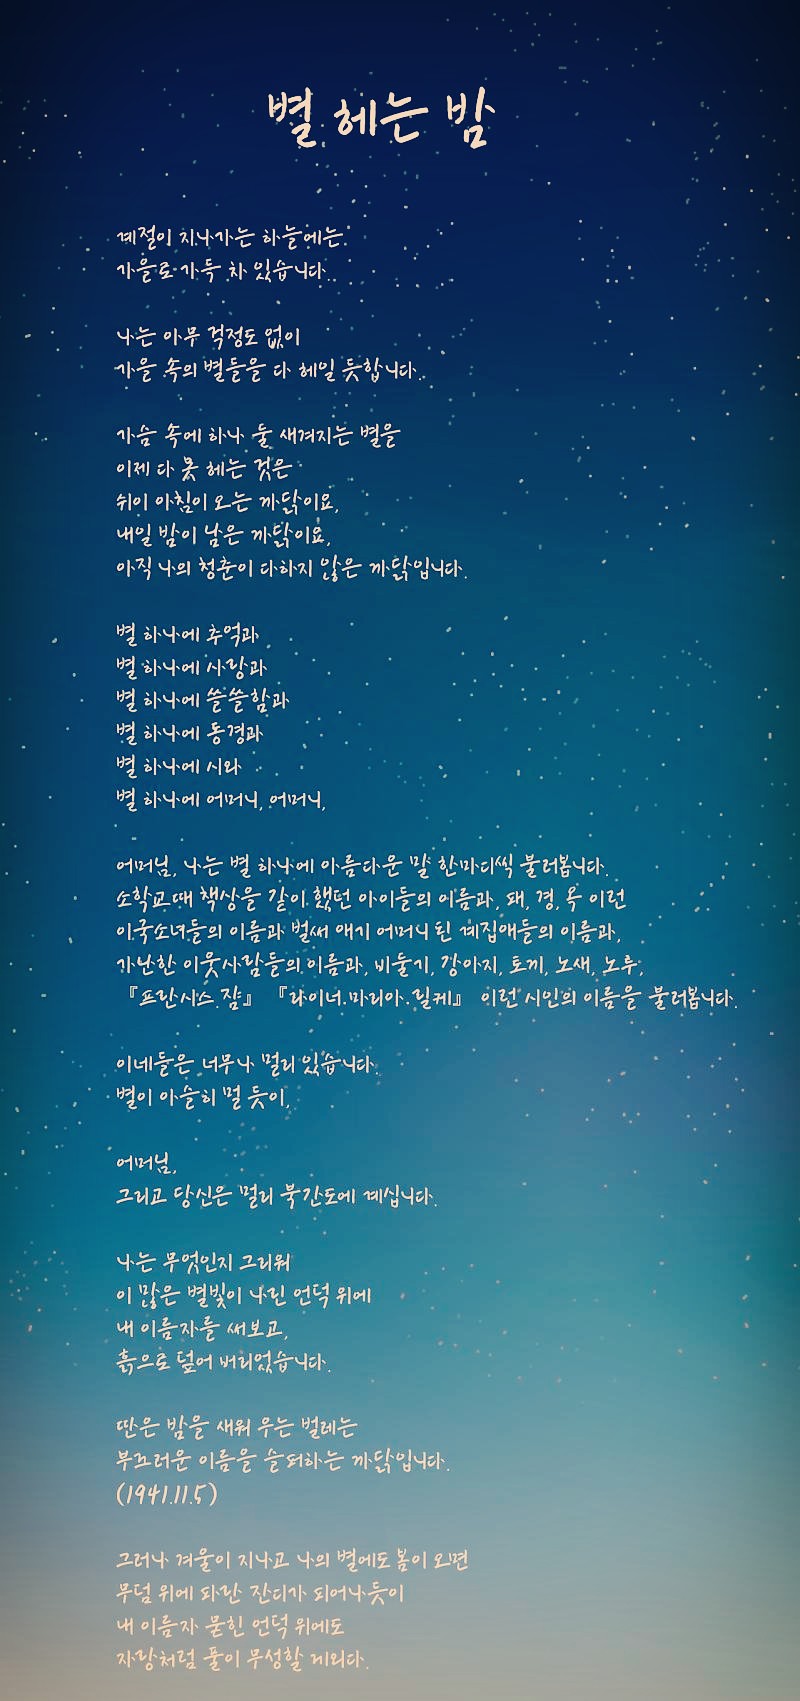 별 헤는 밤
계절이 지나가는 하늘에는
가을로 가득 차 있습니다.
나는 아무 걱정도 없이
가을 속의 별들을 다 헤일 듯합니다.
가슴 속에 하나 둘 새겨지는 별을
이제 다 못 헤는 것은
쉬이 아침이 오는 까닭이요,
내일 밤이 남은 까닭이요,
아직 나의 청춘이 다하지 않은 까닭입니다.
별 하나에 추억과
별 하나에 사랑과
별 하나에 쓸쓸함과
별 하나에 동경과
별 하나에 시와
별 하나에 어머니, 어머니,
어머님, 나는 별 하나에 아름다운 말 한마디씩 불러봅니다.
소학교때 책상을 같이 했던 아이들의 이름과, 패, 경, 옥 이런
이국소녀들의 이름과 벌써 애기 어머니 된 계집애들의 이름과,
가난한 이웃사람들의 이름과, 비둘기, 강아지, 토끼, 노새, 노루,
『프란시스.쟘』 『라이너.마리아.릴케』 이런 시인의 이름을 불러봅니다.
이네들은 너무나 멀리 있습니다.
별이 아슬히 멀 듯이,
어머님,
그리고 당신은 멀리 북간도에 계십니다.
나는 무엇인지 그리워
이 많은 별빛이 나린 언덕 위에
내 이름자를 써보고,
흙으로 덮어 버리었습니다.
딴은 밤을 새워 우는 벌레는
부끄러운 이름을 슬퍼하는 까닭입니다.
(1941.11.5)
그러나 겨울이 지나고 나의 별에도 봄이 오면
무덤 위에 파란 잔디가 피어나듯이
내 이름자 묻힌 언덕 위에도
자랑처럼 풀이 무성할 게외다.